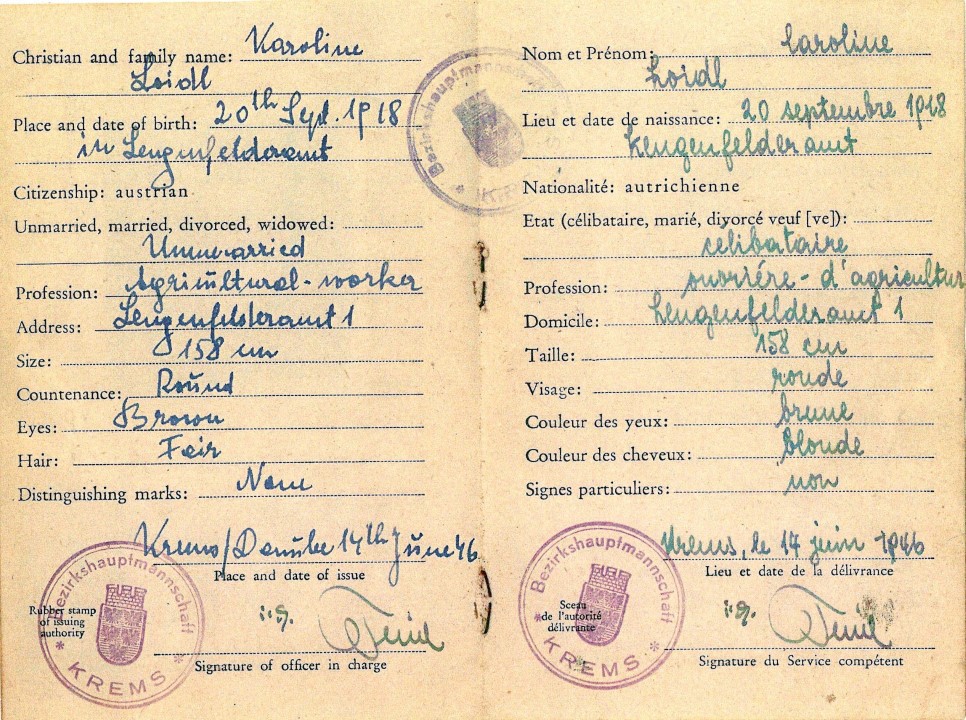 Christian and family name: Karoline
Loidl
Place and date of birth: 20th Sept. 1918
in Lengenfelderamt
Citizenship: austrian
Unmarried, married, divorced, widowed:
Unmarried
Profession: Agricultural-worker
Address: Lengenfelderamt 1
Size: 158 cm
Countenance: Round
Eyes: Brown
Hair: Feir
Distinguishing marks: Non
Krems/Danube 14th June 46
Place and date of issue
Rubber stamp
of issuing
authority
Bezirkshauptmannschaft
* KREMS *
i.V.
Signature of officer in charge
Bezirkshauptmannschaft
* KR
Nom et Prénom: Caroline
Loidl
Lieu et date de naissance: 20 septembre 1918
Lengenfelderamt
Nationalité: autrichienne
Etat (célibataire, marié, divorcé veuf [ve]):
célibataire
Profession: ouvriére-d'agricultur
Domicile: Lengenfelderamt 1
Taille: 158 cm
Visage: ronde
Couleur des yeux: brune
Couleur des cheveux: blonde
Signes particuliers: non
Krems, le 14 juin 1946
Lieu et date de la délivrance
Sceau
de l'autorité
délivrante
Bezirkshauptmannschaft
* KREMS *
i.V.
Signature du Service compétent